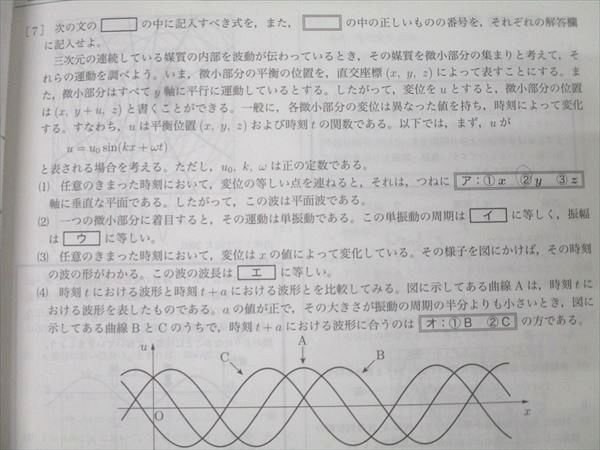 [7] 次の文の□の中に記入すべき式を，また，□の中の正しいものの番号を，それぞれの解答欄
に記入せよ。
三次元の連続している媒質の内部を波動が伝わっているとき，その媒質を微小部分の集まりと考えて，そ
れらの運動を調べよう。いま，微小部分の平衡の位置を，直交座標 (x, y, z) によって表すことにする。ま
た，微小部分はすべて y 軸に平行に運動しているとする。したがって，変位を u とすると，微小部分の位置
は (x, y+u, z) と書くことができる。一般に，各微小部分の変位は異なった値を持ち，時刻によって変化
する。すなわち，u は平衡位置 (x, y, z) および時刻 t の関数である。以下では，まず，u が
u = u₀ sin(kx + ωt)
と表される場合を考える。ただし，u₀, k, ω は正の定数である。
(1) 任意のきまった時刻において，変位の等しい点を連ねると，それは，つねに ア：① x ② y ③ z
軸に垂直な平面である。したがって，この波は平面波である。
(2) 一つの微小部分に着目すると，その運動は単振動である。この単振動の周期は イ に等しく，振幅
は ウ に等しい。
(3) 任意のきまった時刻において，変位は x の値によって変化している。その様子を図にかけば，その時刻
の波の形がわかる。この波の波長は エ に等しい。
(4) 時刻 t における波形と時刻 t+a における波形とを比較してみる。図に示してある曲線 A は，時刻 t に
おける波形を表したものである。a の値が正で，その大きさが振動の周期の半分よりも小さいとき，図に
示してある曲線 B と C のうちで，時刻 t+a における波形に合うのは オ：① B ② C の方である。
u
C
A
B
O
x